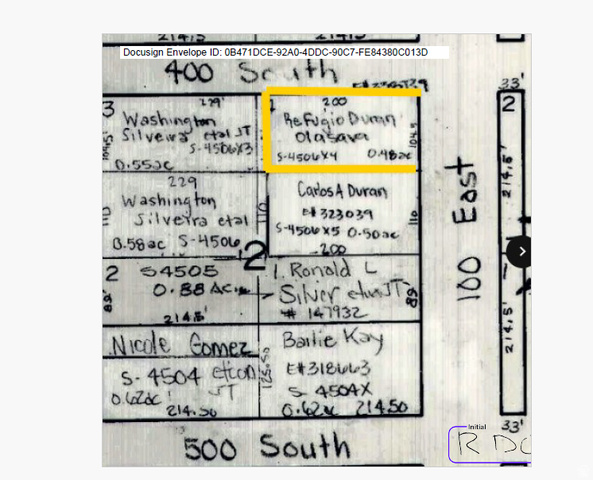 214.5'
Docusign Envelope ID: 0B471DCE-92A0-4DDC-90C7-FE84380C013D
400 South
33'
3
229'
Washington
Silveira etal JT
S-4506X3
104.5
0.55ac
200
Refugio Duran
Olasava
S-4506X4 0.48ac
104.5
2
214.5'
229
Washington
Silveira etal
0.58ac S-4506
110
Carlos A Duran
E# 323039
S-4506X5 0.50ac
200
110
2
100 East
2 S4505
0.88 Ac.
82'
214.5'
1. Ronald L
Silver etux JT
# 147932
82
214.5'
Nicole Gomez
S-4504 etcon
JT
0.62ac
214.50
125.50
Bailie Kay
E# 318663
S-4504X
0.62ac 214.50
33'
500 South
Initial
R DC